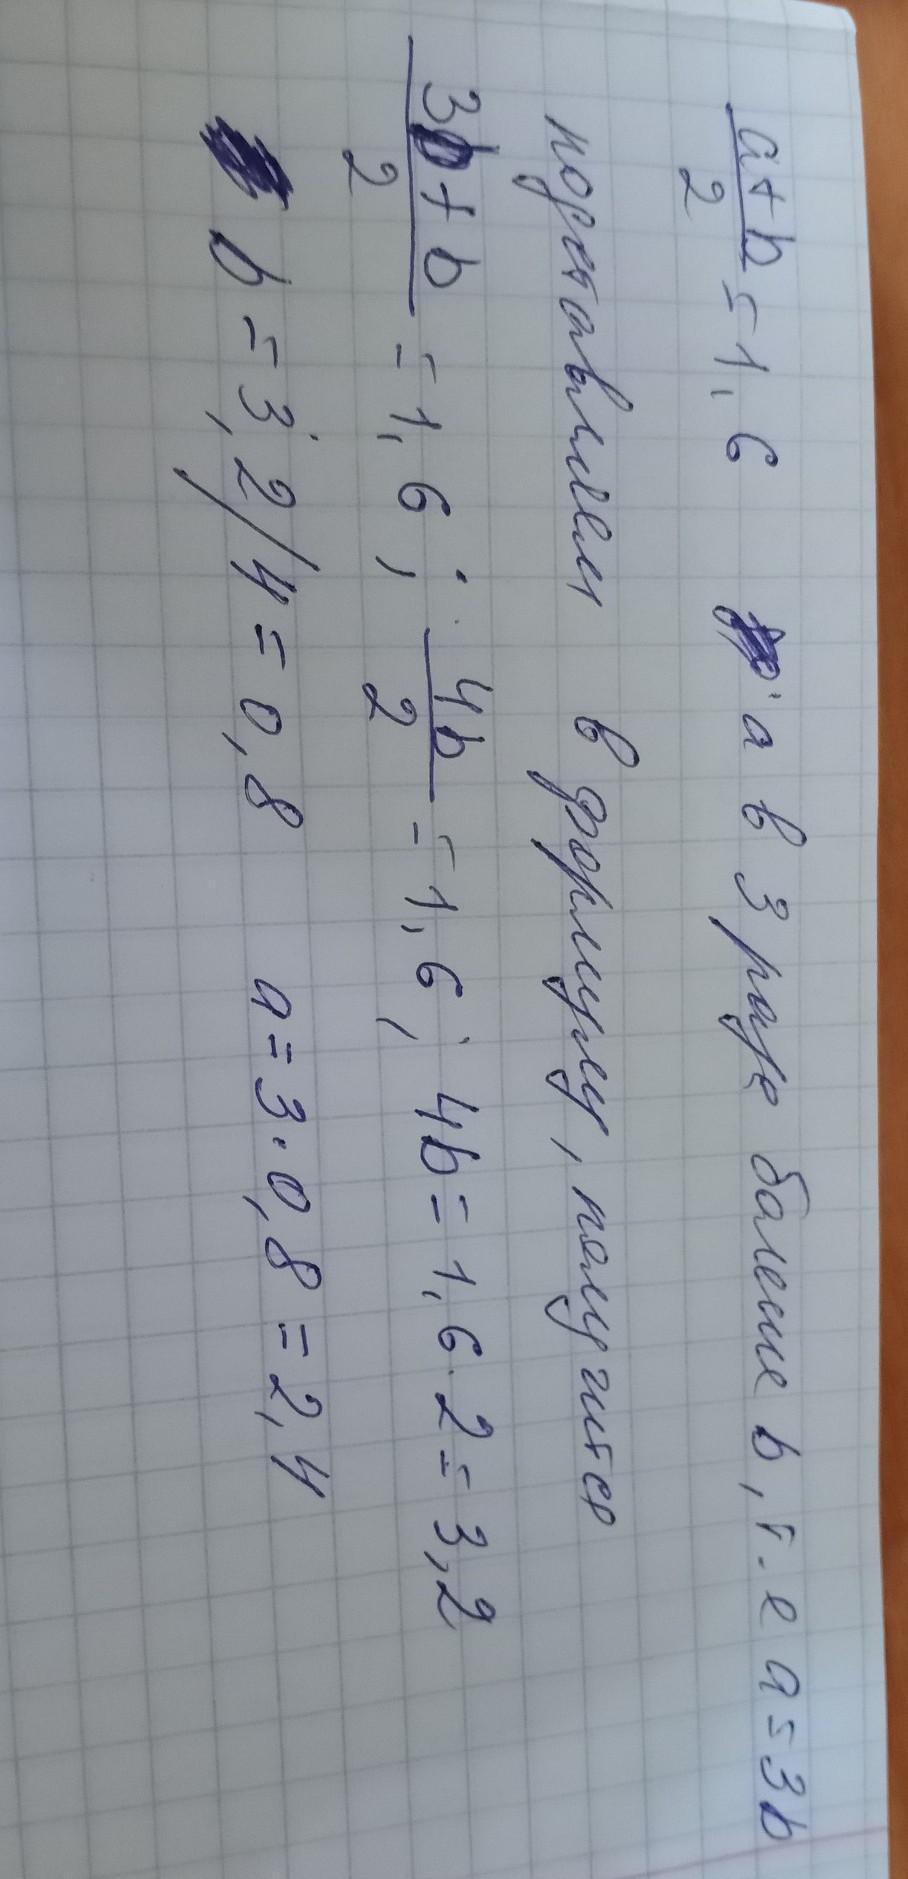 (a+b)/2 = 1,6 а в 3 раза больше b, т.е a=3b
подставляем в формулу, получится
(3b+b)/2 = 1,6; 4b/2 = 1,6; 4b=1,6·2=3,2
b=3,2/4=0,8 a=3·0,8=2,4